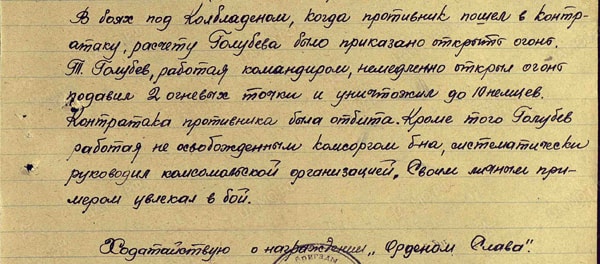 В боях под Колбладеном, когда противник пошел в контр-
атаку, расчету Голубева было приказано открыть огонь.
Т. Голубев, работая командиром, немедленно открыл огонь
подавил 2 огневых точки и уничтожил до 10 немцев.
Контратака противника была отбита. Кроме того Голубев
работая не освобожденным комсоргом б-на, систематически
руководил комсомольской организацией. Своим личным при-
мером увлекал в бой.
Ходатайствую о награждении „Орденом Слава".
БРИГАДЫ